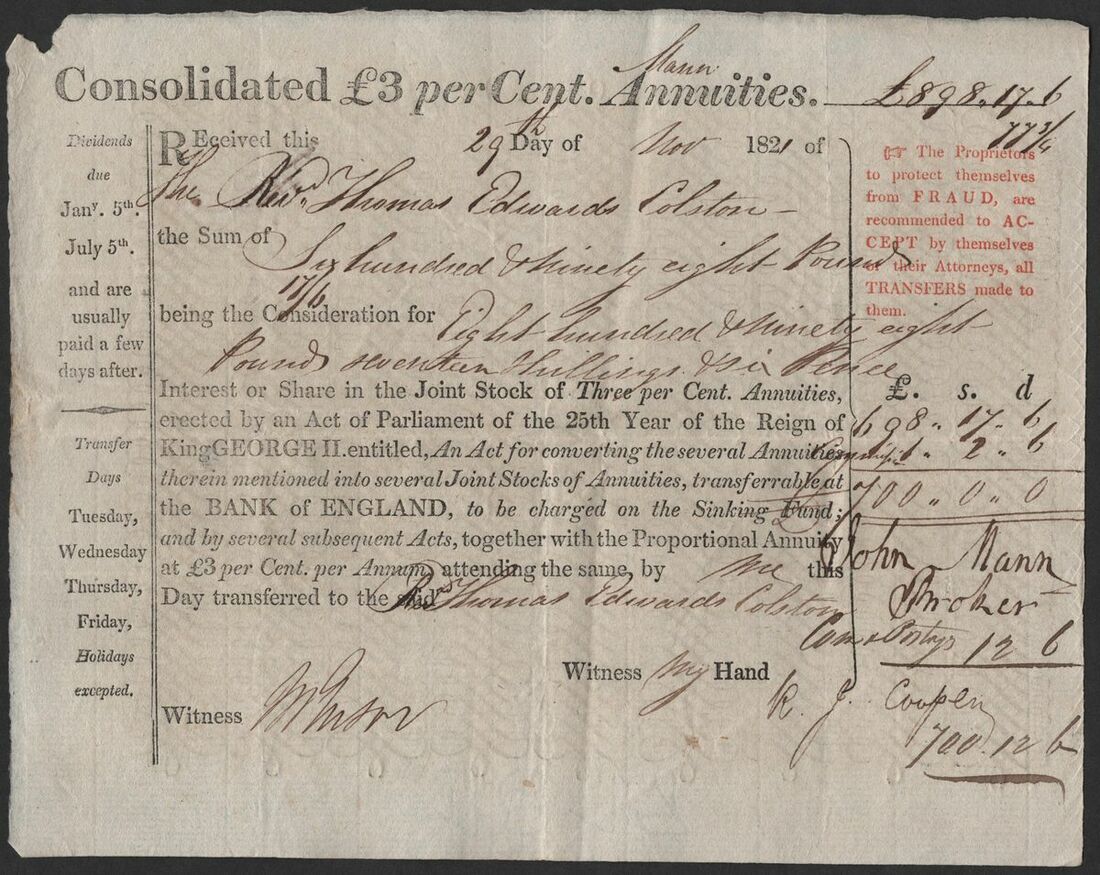 Mann
Consolidated £3 per Cent. Annuities. £898.17.6
77 3/4
Dividends
due
Jany. 5th.
July 5th.
and are
usually
paid a few
days after.
Transfer
Days
Tuesday,
Wednesday
Thursday,
Friday,
Holidays
excepted.
REceived this 29th Day of Nov 1821 of
The Revd. Thomas Edwards Colston
the Sum of Six hundred & ninety eight Pounds
17/6
being the Consideration for Eight hundred & ninety eight
Pounds seventeen Shillings & six Pence
Interest or Share in the Joint Stock of Three per Cent. Annuities,
erected by an Act of Parliament of the 25th Year of the Reign of
King GEORGE II. entitled, An Act for converting the several Annuities
therein mentioned into several Joint Stocks of Annuities, transferrable at
the BANK of ENGLAND, to be charged on the Sinking Fund;
and by several subsequent Acts, together with the Proportional Annuity
at £3 per Cent. per Annum, attending the same, by me this
Day transferred to the said Revd Thomas Edwards Colston
Witness my Hand
Witness
☞ The Proprietors
to protect themselves
from FRAUD, are
recommended to AC-
CEPT by themselves
or their Attorneys, all
TRANSFERS made to
them.
£. s. d
698 " 17 " 6
" 2 " 6
£ 700 " 0 " 0
John Mann
Broker
12 6
J. Cooper
700.12 6